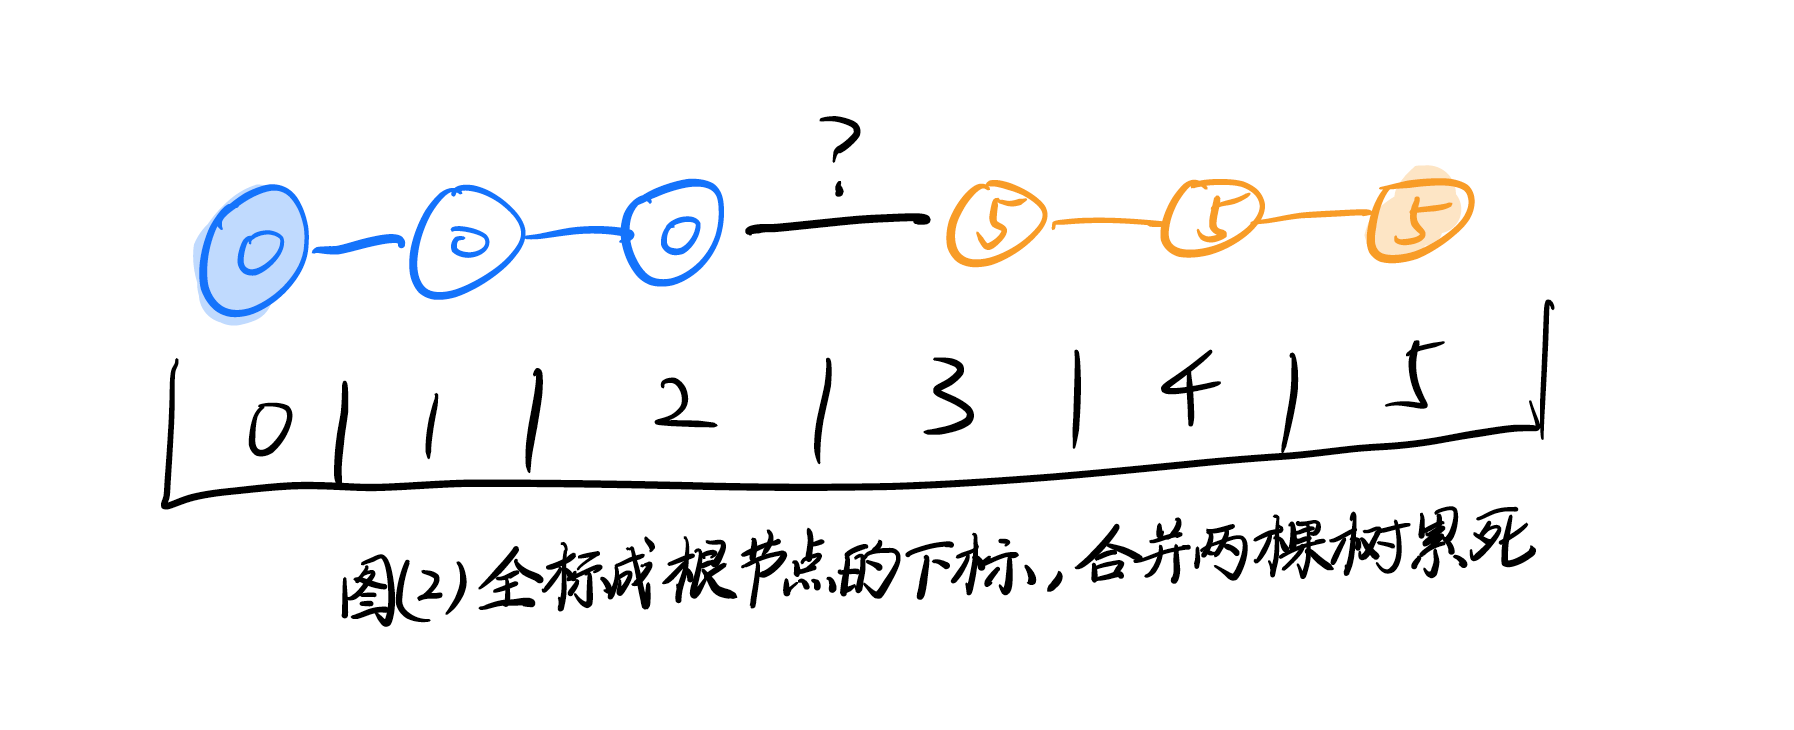 ?
0 0 0 5 5 5
0 1 2 3 4 5
图(2)全标成根节点的下标,合并两棵树累死